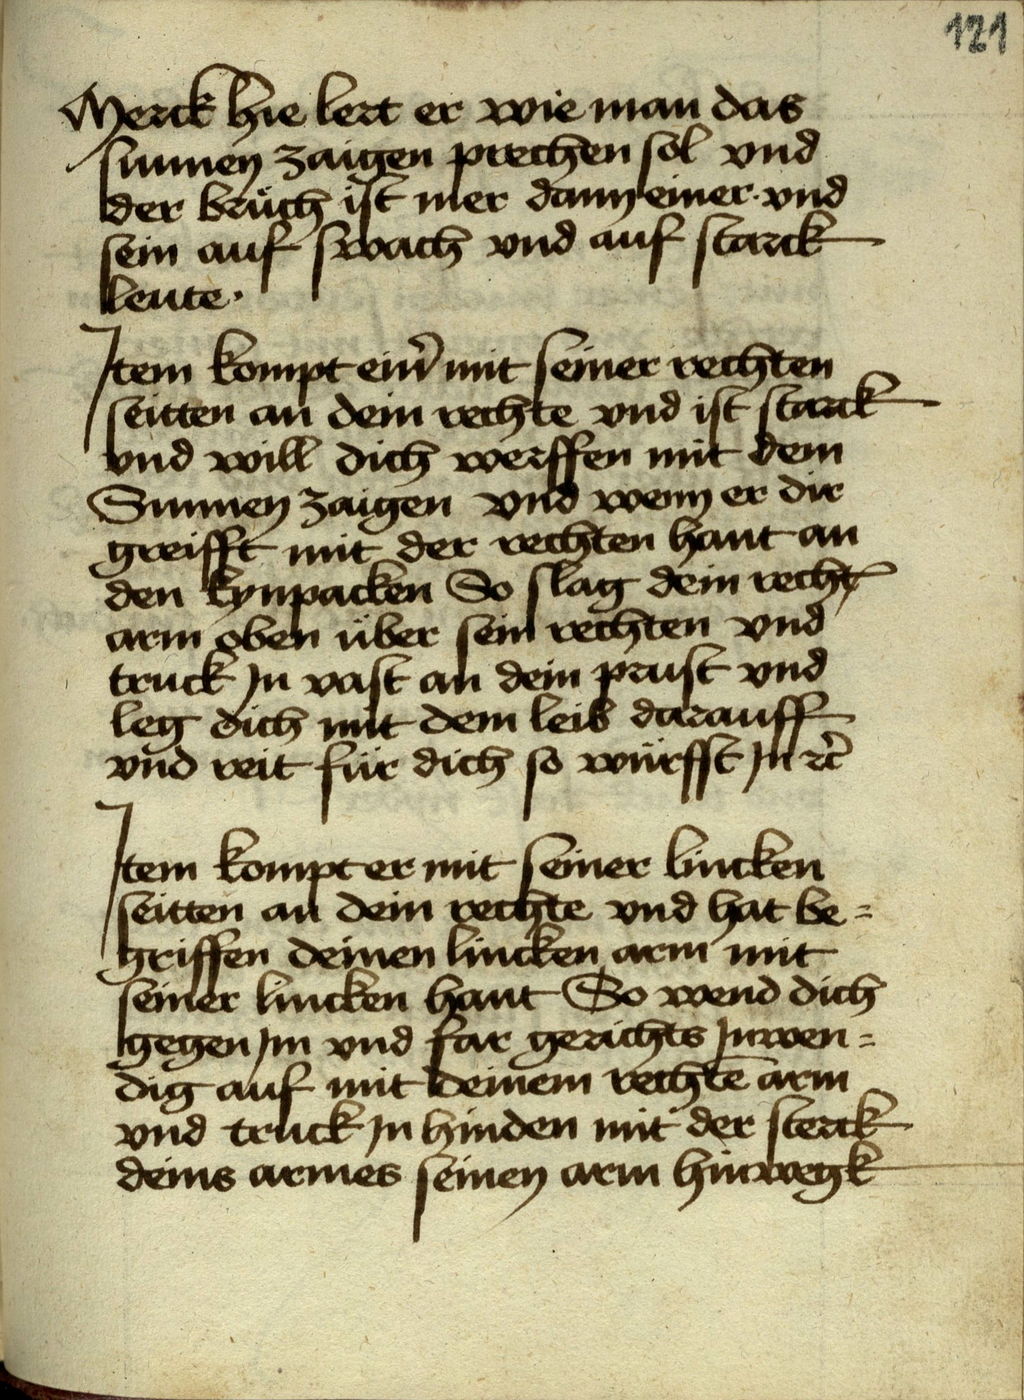 121
Merck hie lert er wie man das
sunnen zaigen prechen sol vnd
der brüch ist mer dann einer · vnd
sein auf swach vnd auf starck
leute ·
Jtem kompt ein̾ mit seiner rechten
seitten an dein rechte vnd ist starck
vnd will dich werffen mit dem
Sunnen zaigen vnd wenn er dir
greifft mit der rechten hant an
den kynpacken So slag dein recht̄
arm oben über sein rechten vnd
truck Jn vast an dein prust vnd
leg dich mit dem leib darauff
vnd reit für dich so würfst Jn ꝛc̄
Jtem kompt er mit seiner lincken
seitten an dein rechte vnd hat be=
griffen deinen lincken arm mit
seiner lincken hant So wend dich
gegen Jm vnd far gerichts Jnwen=
dig auf mit deinem rechtē arm
vnd truck Jn hinden mit der sterck
deins armes seinen arm hinwegk